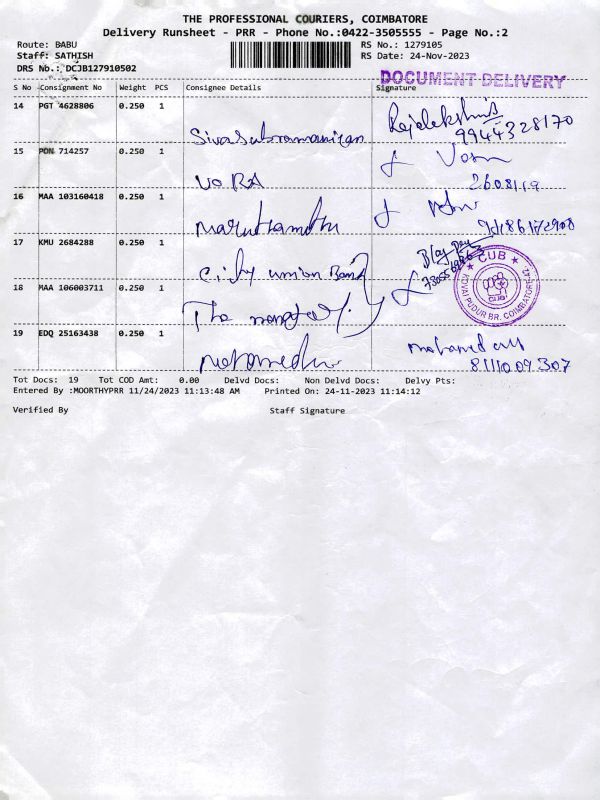 THE PROFESSIONAL COURIERS, COIMBATORE
Delivery Runsheet - PRR - Phone No.:0422-3505555 - Page No.:2
Route: BABU RS No.: 1279105
Staff: SATHISH RS Date: 24-Nov-2023
DRS No.: DCJB127910502
DOCUMENT DELIVERY
S No Consignment No Weight PCS Consignee Details Signature
14 PGT 4628806 0.250 1
Sivasubramaniyan Rajalekshmi 9944328170
15 PDN 714257 0.250 1
VORA
16 MAA 103160418 0.250 1
Maruthamuthu
17 KMU 2684288 0.250 1
City union Bank
18 MAA 106003711 0.250 1
The
CUB
KOVAI PUDUR BR. COIMBATORE-42
19 EDQ 25163438 0.250 1
mohamed
Tot Docs: 19 Tot COD Amt: 0.00 Delvd Docs: Non Delvd Docs: Delvy Pts:
Entered By :MOORTHYPRR 11/24/2023 11:13:48 AM Printed On: 24-11-2023 11:14:12
Verified By Staff Signature